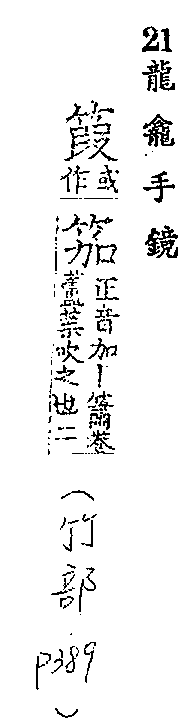 21龍龕手鏡
䈔或作
笳正音加丨簫卷蘆葉吹之也二
(竹部.p389)